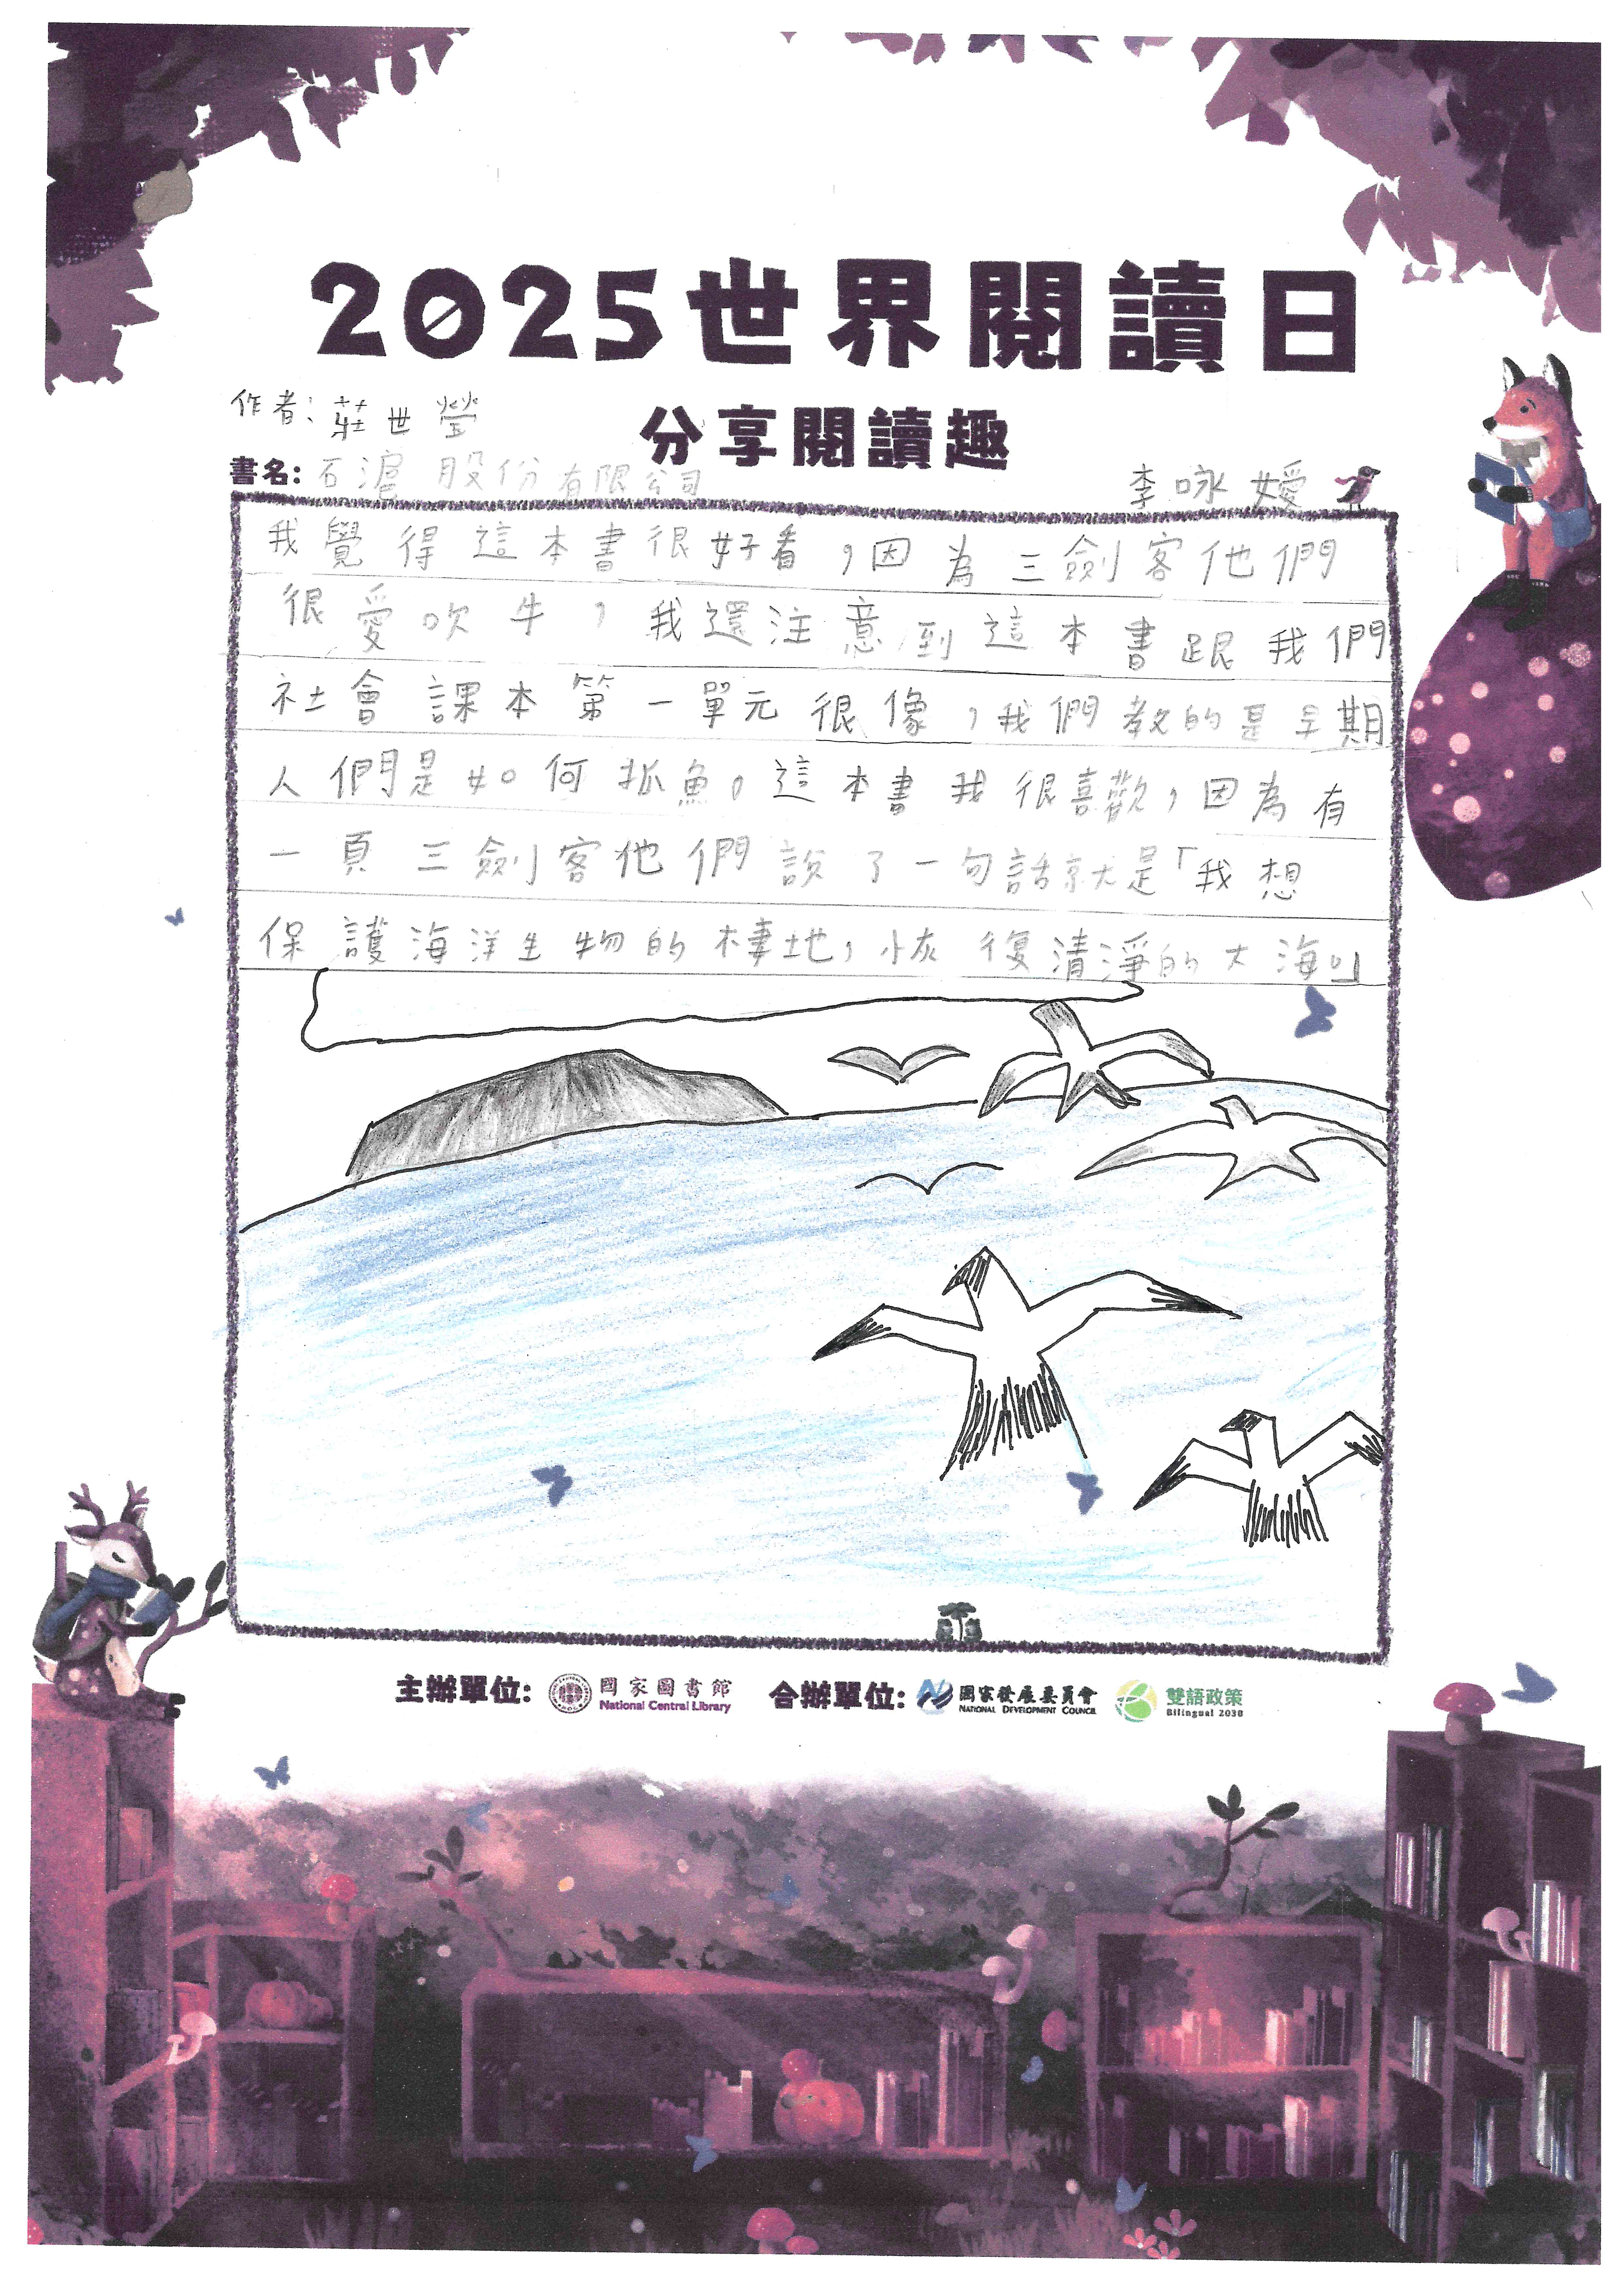 2025世界閱讀日
作者:莊世瑩
分享閱讀趣
書名:石滬股份有限公司
李咏嬡
我覺得這本書很好看,因為三劍客他們
很愛吹牛,我還注意到這本書跟我們
社會課本第一單元很像,我們教的是早期
人們是如何抓魚。這本書我很喜歡,因為有
一頁三劍客他們說了一句話就是「我想
保護海洋生物的棲地,恢復清淨的大海。」
主辦單位: 國家圖書館 National Central Library 合辦單位: 國家發展委員會 NATIONAL DEVELOPMENT COUNCIL 雙語政策 Bilingual 2030